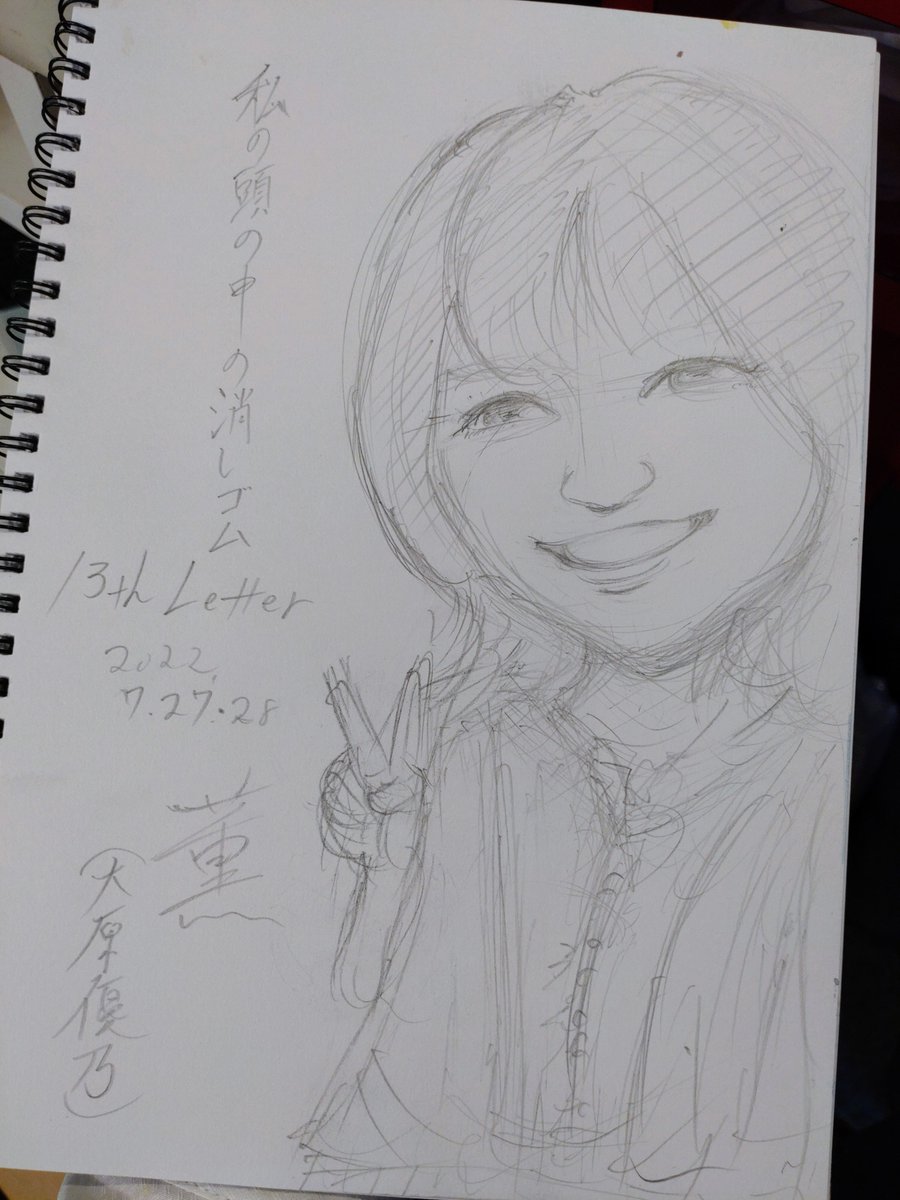 私の頭の中の消しゴム
13th Letter
2022.
7.27.28
薫
(大原優乃)